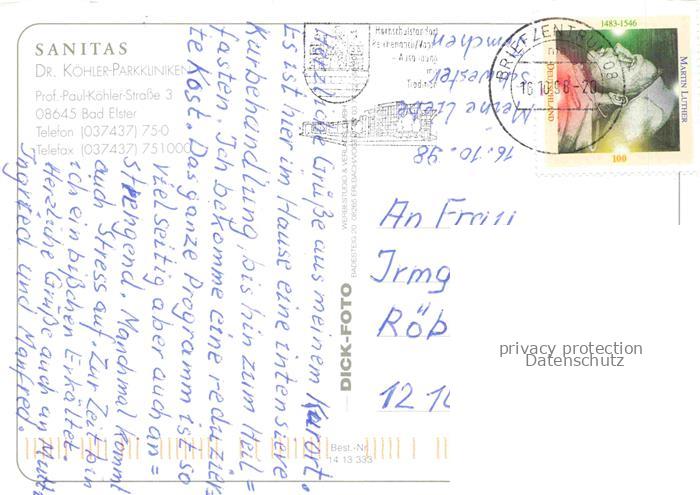 SANITAS
DR. KÖHLER-PARKKLINIKEN
Prof.-Paul-Köhler-Straße 3
08645 Bad Elster
Telefon (037437) 75-0
Telefax (037437) 751000
16.10.98
Meine liebe
Schwester
Herzliche Grüße aus meinem Kurort.
Es ist hier im Hause eine intensive
Kurbehandlung, bis hin zum Heil=
fasten. Ich bekomme eine reduzier=
te Kost. Das ganze Programm ist so
vielseitig aber auch an=
strengend. Manchmal kommt
auch Stress auf. Zur Zeit bin
ich ein bißchen Erkältet.
Herzliche Grüße auch an Mutti
Ingried und Manfred.
DICK-FOTO
BADESTEIG 20
Best.-Nr.
14 13 333
BRIEFZENTRUM 08
16.10.98-20
1483-1546
MARTIN LUTHER
DEUTSCHLAND
100
An Frau
Irmg
Röb
12
privacy protection
Datenschutz